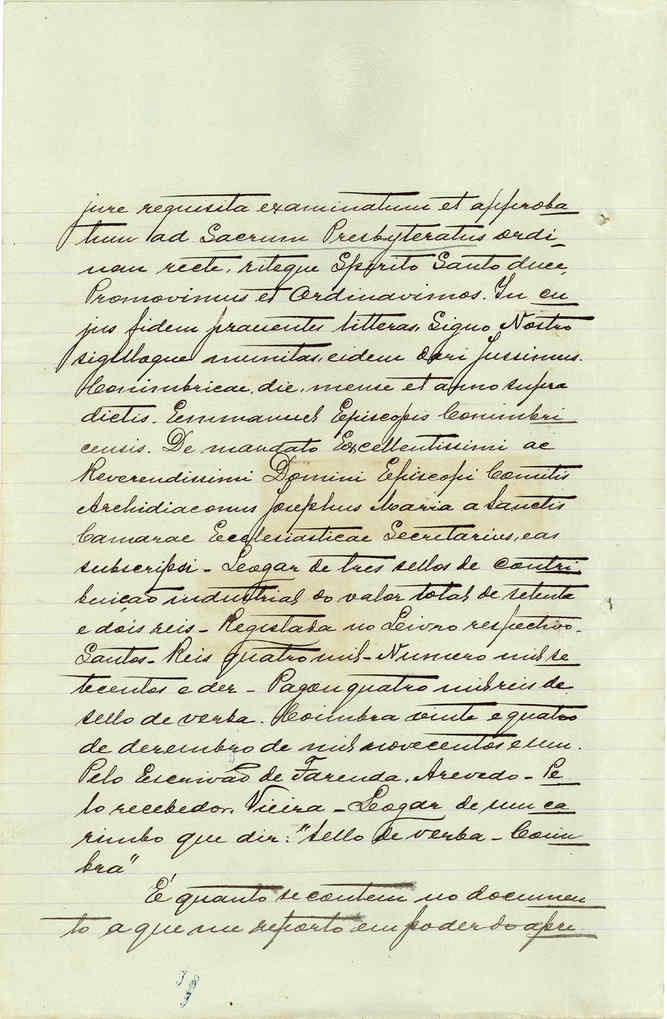 jure requisita examinatum et approba
tum ad Sacrum Presbyteratus ordi-
nem recte, riteque Spirito Santo duce,
Promovimus et Ordinavimos. In cu
jus fidem prauentes litteras, Signo Nostro
sigilloque munitas, eidem dari jussimus.
Conimbricae, die, mense et anno supra
dictis. Emmanuel Episcopis Conimbri
censis. De mandato Excellentissimi ac
Reverendissimi Domini Episcopi Comitis
Archidiaconus Josephus Maria a Sanctis
Camarae Ecclesiasticae Secretarius, eas
subscripsi - Logar de tres sellos de contri
buição industrial do valor total de setenta
e dois reis - Registada no Livro respectivo.
Santos - Reis quatro mil - Numero mil se
tecentos e dez - Pagou quatro mil reis de
sello de verba. Coimbra vinte e quatro
de dezembro de mil novecentos e um.
Pelo Escrivão de Fazenda, Azevedo - Pe
lo recebedor, Vieira - Logar de um ca
rimbo que diz: "Sello de verba - Coim
bra"
E quanto se contem no documen
to a que me reporto em poder do apre